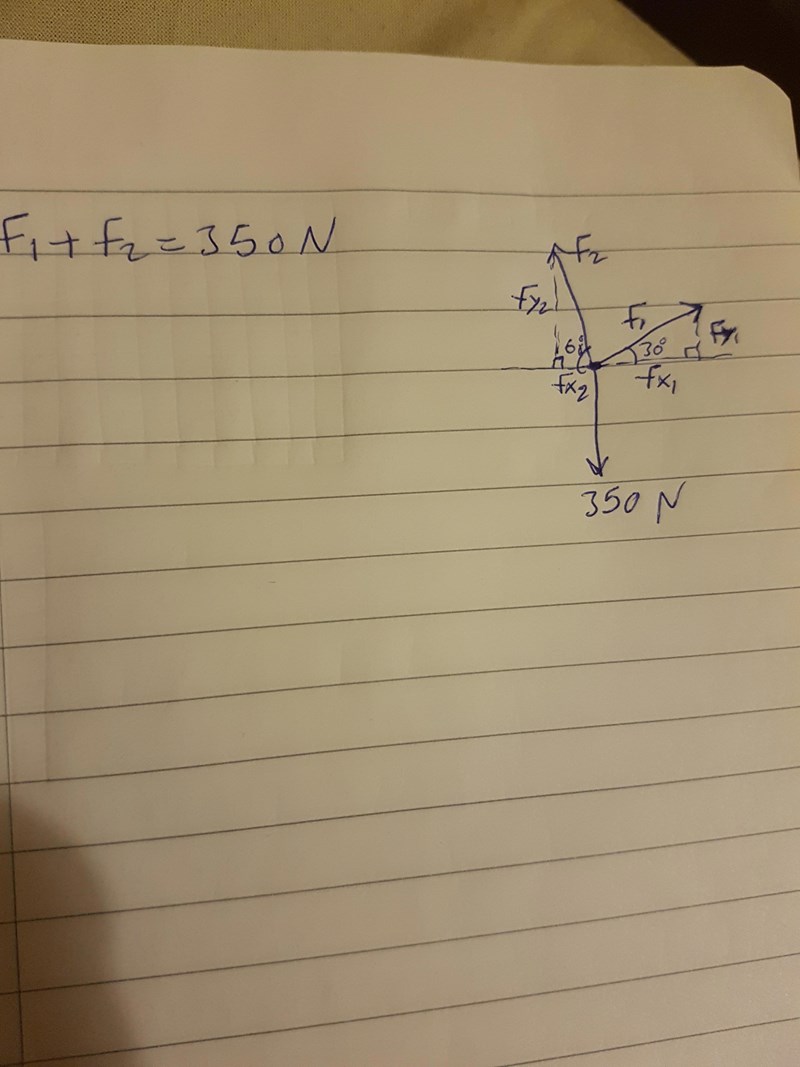 F₁ + F₂ = 350 N
F₂
Fy₂
F₁
30°
Fx₂
Fx₁
350 N